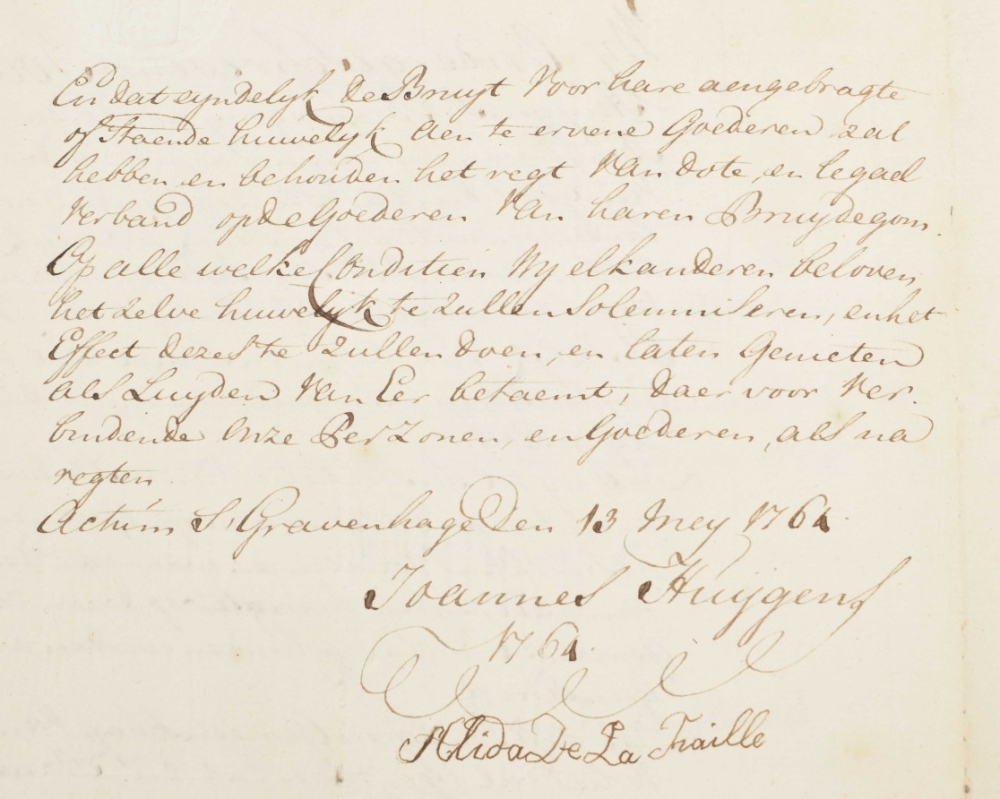 En dat eyndelyk de Bruyt voor hare aengebragte
of staende huwelyk aen te ervene Goederen zal
hebben en behouden het regt van dote, en legael
verband op de Goederen van haren Bruydegom.
Op alle welke Conditien Wy elkanderen beloven
het zelve huwelyk te zullen Solemniseren, en het
Effect dezes te zullen doen, en laten Genieten
als Luyden van Eer betaemt, daer voor Ver-
bindende Onze Perzonen, en Goederen, als na
regten
Actum S' Gravenhage Den 13 mey 1764.
Joannes Huygens
1764.
Alida De La Fraille